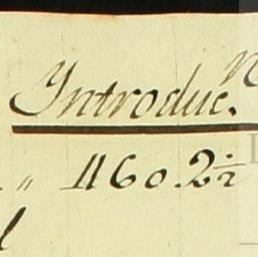 Introduc.n
" 1160.2½